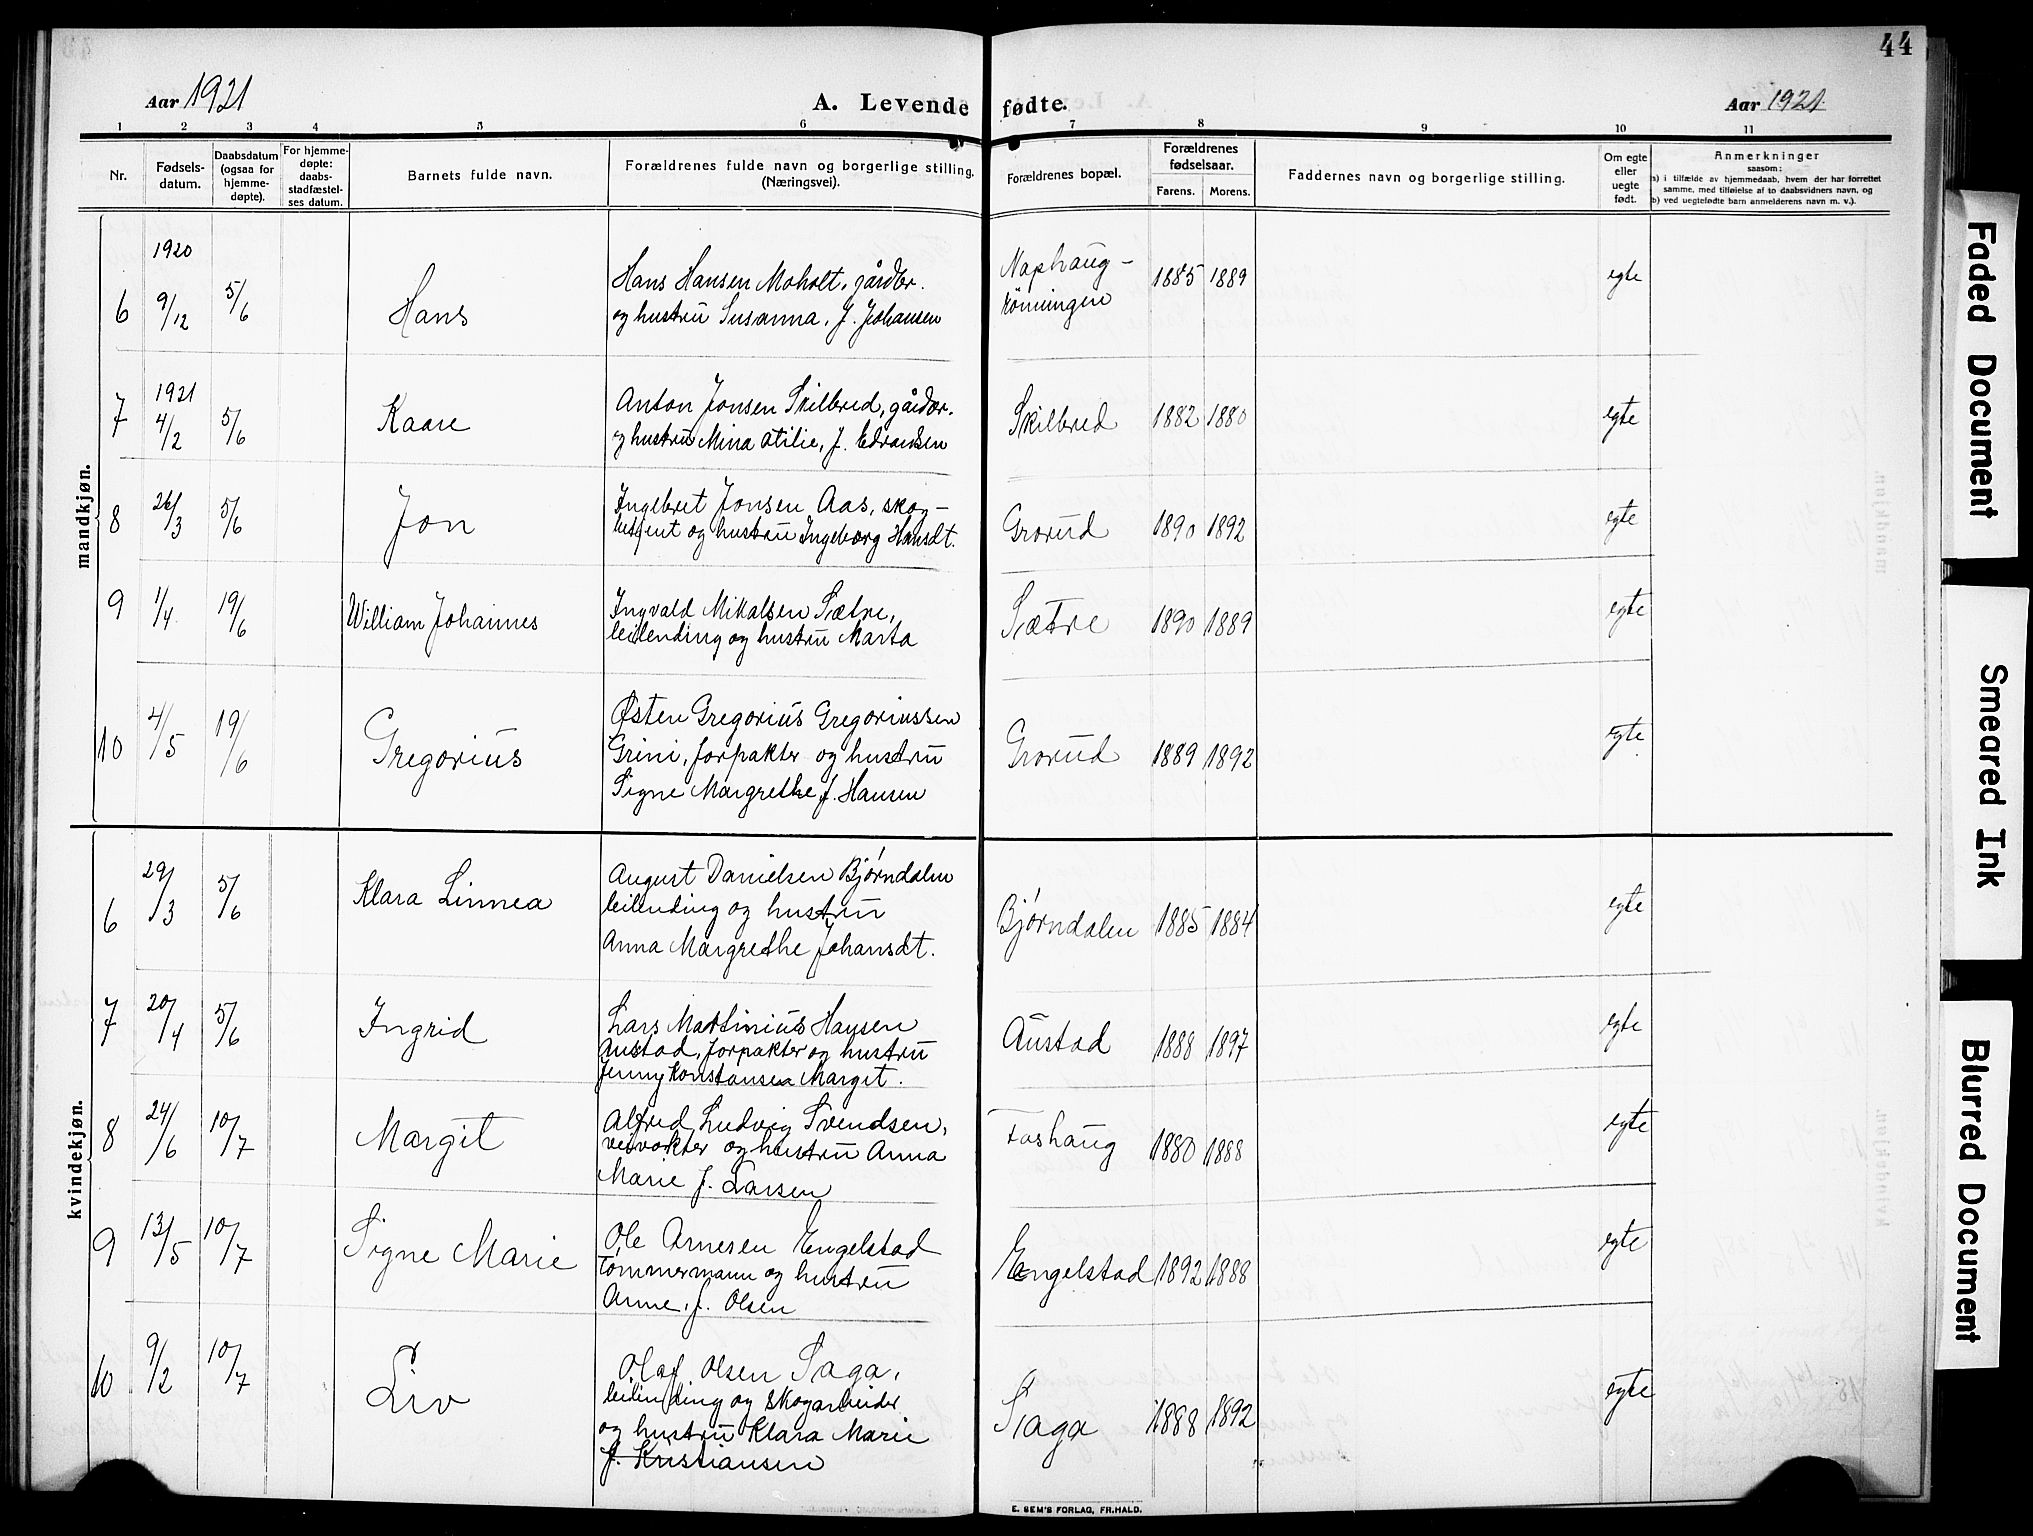 44
Aar 1921
A. Levende fødte.
Aar 1921.
1 2 3 4 5 6 7 8 9 10 11
Nr.
Fødsels-
datum.
Daabsdatum
(ogsaa for
hjemme-
døpte).
For hjemme-
døpte:
daabs-
stadfæstel-
ses datum.
Barnets fulde navn.
Forældrenes fulde navn og borgerlige stilling.
(Næringsvei).
Forældrenes bopæl.
Forældrenes
fødselsaar.
Farens. Morens.
Faddernes navn og borgerlige stilling.
Om egte
eller
uegte
født.
Anmerkninger
saasom:
a) i tilfælde av hjemmedaab, hvem der har forrettet
samme, med tilføielse af to daabsvidners navn, og
b) ved uegtefødte barn anmelderens navn m. v.).
mandkjøn.
1920
6 9/12 5/6 Hans
Hans Hansen Moholt, gårdbr.
og hustru Susanna, f. Johansen
Naphaug-
rönningen
1885 1889 egte
1921
7 4/2 5/6 Kaare
Anton Jonsen Skilbred, gårdbr.
og hustru Mina Otilie, f. Edvardsen
Skilbred 1882 1880 egte
8 26/3 5/6 Jon
Ingebret Jonsen Aas, skog-
betjent og hustru Ingeborg Hansdt.
Grorud 1890 1892 egte
9 1/4 19/6 William Johannes
Ingvald Mikalsen Sætre,
leilending og hustru Marta
Sætre 1890 1889 egte
10 4/5 19/6 Gregorius
Østen Gregorius Gregoriussen
Grini, forpakter og hustru
Signe Margrethe f. Hansen
Grorud 1889 1892 egte
kvindekjøn.
6 29/3 5/6 Klara Linnea
August Danielsen Bjørndalen
leilending og hustru
Anna Margrethe Johansdt.
Bjørndalen 1885 1884 egte
7 20/4 5/6 Ingrid
Lars Martinius Hansen
Austad, forpakter og hustru
Jenny Konstanse Margit.
Austad 1888 1897 egte
8 24/6 10/7 Margit
Alfred Ludvig Svendsen,
veivokter og hustru Anna
Marie f. Larsen
Foshaug 1880 1888 egte
9 13/5 10/7 Signe Marie
Ole Arnesen Engelstad
tømmermann og hustru
Anne, f. Olsen
Engelstad 1892 1888 egte
10 9/2 10/7 Liv
Olaf Olsen Saga,
leilending og skogarbeider
og hustru Klara Marie
f. Kristiansen
Saga 1888 1892 egte
E. SEM'S FORLAG, FR.HALD.
Faded Document
Smeared Ink
Blurred Document